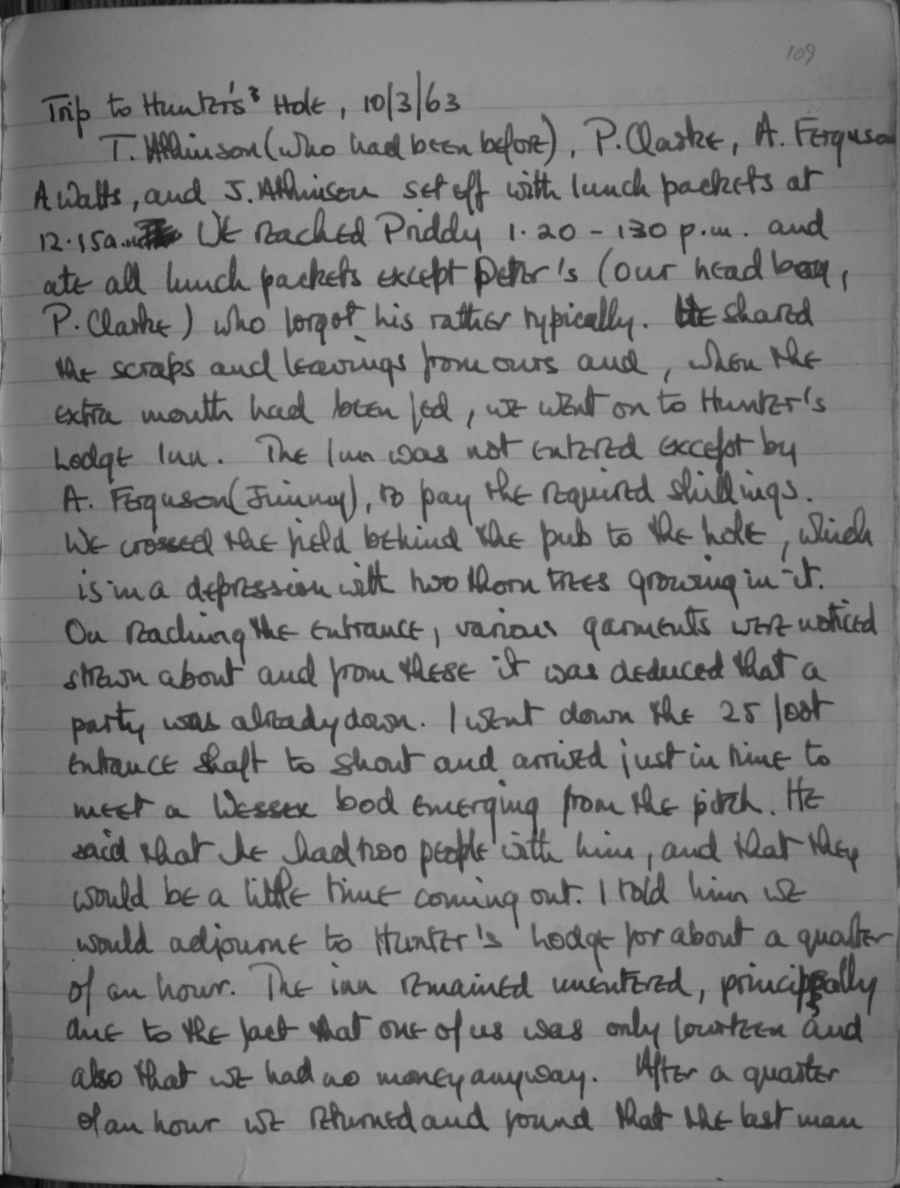 109
Trip to Hunter's Hole, 10/3/63
T. Atkinson (who had been before), P. Clarke, A. Ferguson
A Watts, and J. Atkinson set off with lunch packets at
12.15a.m. We reached Priddy 1.20 - 130 p.m. and
ate all lunch packets except Peter's (our head boy,
P. Clarke) who forgot his rather typically. He shared
the scraps and leavings from ours and, when the
extra mouth had been fed, we went on to Hunter's
Lodge Inn. The Inn was not entered except by
A. Ferguson (Jimmy), to pay the required shillings.
We crossed the field behind the pub to the hole, which
is in a depression with two thorn trees growing in it.
On reaching the entrance, various garments were noticed
strewn about and from these it was deduced that a
party was already down. I went down the 25 foot
entrance shaft to shout and arrived just in time to
meet a Wessex bod emerging from the pitch. He
said that he had two people with him, and that they
would be a little time coming out. I told him we
would adjourne to Hunter's Lodge for about a quarter
of an hour. The inn remained unentered, principally
due to the fact that one of us was only fourteen and
also that we had no money anyway. After a quarter
of an hour we returned and found that the last man